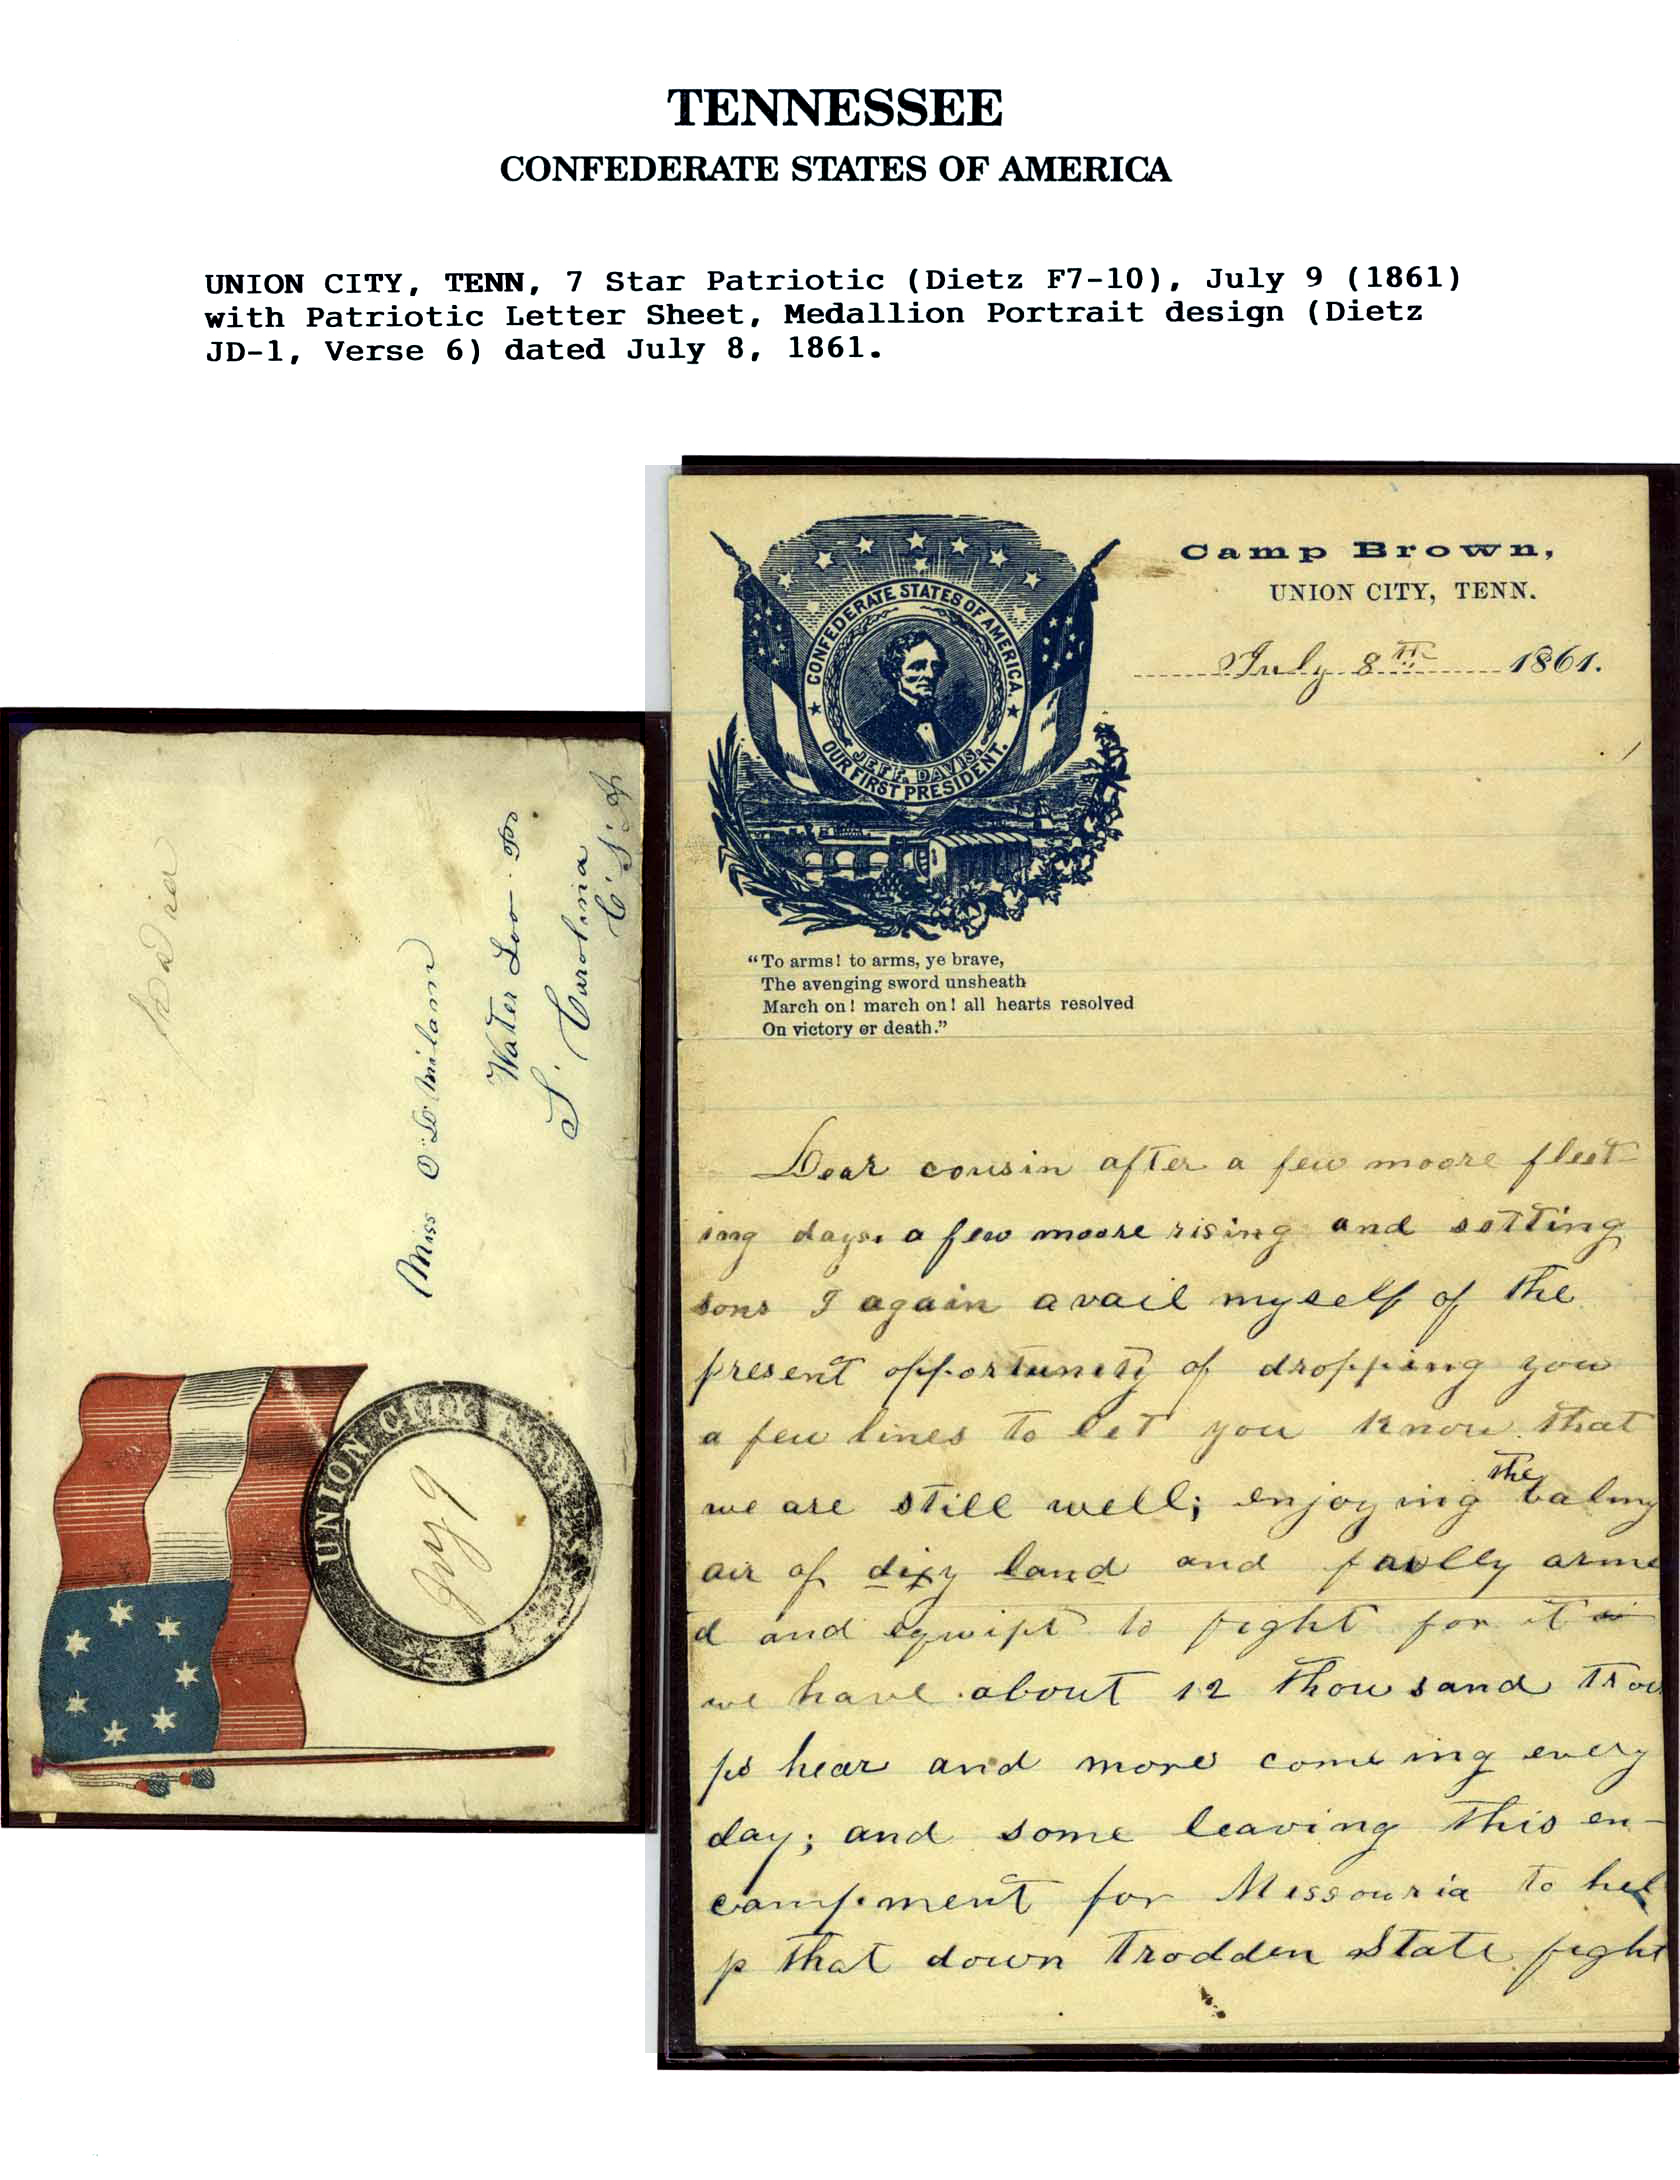 TENNESSEE
CONFEDERATE STATES OF AMERICA
UNION CITY, TENN, 7 Star Patriotic (Dietz F7-10), July 9 (1861)
with Patriotic Letter Sheet, Medallion Portrait design (Dietz
JD-1, Verse 6) dated July 8, 1861.
CONFEDERATE STATES OF AMERICA.
JEFF. DAVIS.
OUR FIRST PRESIDENT.
Camp Brown,
UNION CITY, TENN.
July 8TH 1861.
"To arms! to arms, ye brave,
The avenging sword unsheath
March on! march on! all hearts resolved
On victory or death."
Dear cousin after a few moore fleet
ing days. a few moore rising and setting
sons I again avail myself of the
present opportunity of dropping you
a few lines to let you know that
we are still well; enjoying the balmy
air of dixy land and fully arme
d and eqwipt to fight for it
we have about 12 thousand trou
ps hear and more comeing every
day; and some leaving this en-
campment for Missouria to hel
p that down trodden State fight
Miss C L Milam
Water Loo
S. Carolina
C.S.A
UNION CITY TENN
July 9